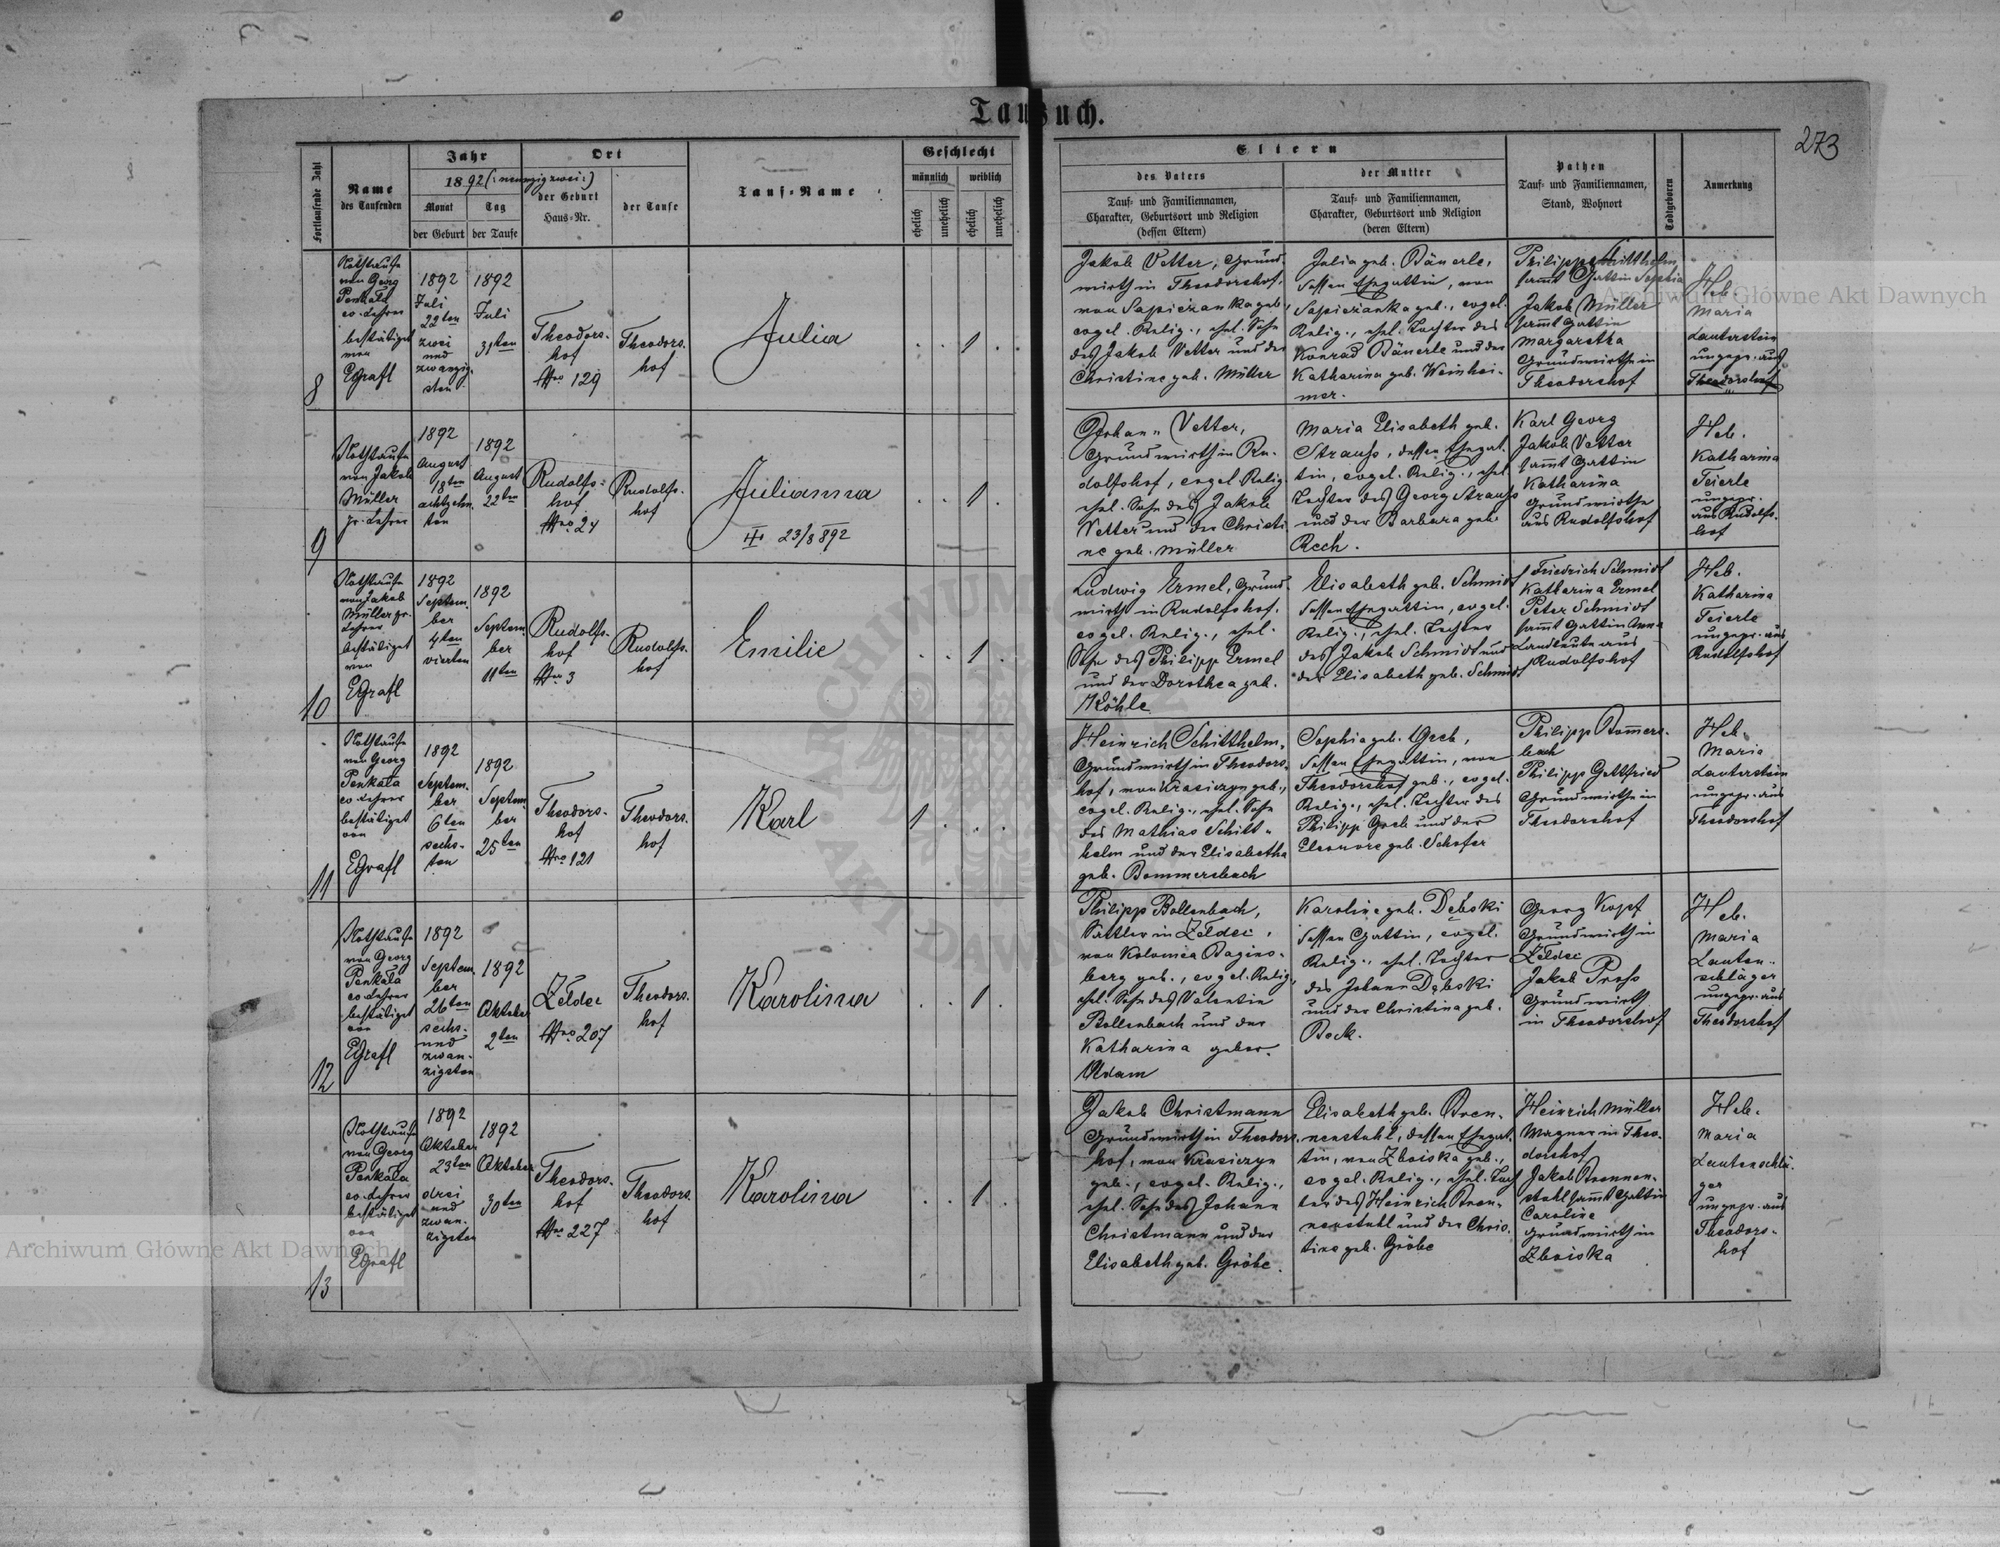 Taufbuch.
273
Fortlaufende Zahl
Name
des Taufenden
Jahr
1892 (: neunzig zwei :)
Monat
der Geburt
Tag
der Taufe
Ort
der Geburt
Haus-Nr.
der Taufe
Tauf-Name
Geschlecht
männlich
weiblich
ehelich
unehelich
ehelich
unehelich
Eltern
des Vaters
Tauf- und Familiennamen,
Charakter, Geburtsort und Religion
(dessen Eltern)
der Mutter
Tauf- und Familiennamen,
Charakter, Geburtsort und Religion
(deren Eltern)
Pathen
Tauf- und Familiennamen,
Stand, Wohnort
Todtgeboren
Anmerkung
8
Nothtaufe
von Georg
Penkala
ev. Lehrer
bestätiget
von
EGrafl
1892
Juli
22ten
zwei
und
zwanzig-
sten
1892
Juli
31ten
Theodors-
hof
Nro 129
Theodors-
hof
Julia
1
Jakob Vetter, Grund-
wirth in Theodorshof,
von Sapiezanka geb.,
evgel. Relig., ehel. Sohn
des Jakob Vetter und der
Christine geb. Müller
Julia geb. Bäuerle,
dessen Ehegattin, von
Sapiezanka geb., evgel.
Relig., ehel. Tochter des
Konrad Bäuerle und der
Katharina geb. Weinhei-
mer.
Philipp Schitthelm
sammt Gattin Sophia
Jakob Müller
sammt Gattin
Margaretha
Grundwirthe in
Theodorshof
Heb.
Maria
Lauterstein
ungepr. aus
Theodorshof
9
Nothtaufe
von Jakob
Müller
pr. Lehrer
1892
August
18ten
achtzehn-
ten
1892
August
22ten
Rudolfs-
hof
Nro 24
Rudolfs-
hof
Julianna
23/8 892
1
Johann Vetter,
Grundwirth in Ru-
dolfshof, evgel Relig
ehel. Sohn des Jakob
Vetter und der Christi-
ne geb. Müller
Maria Elisabeth geb.
Strauss, dessen Ehegat-
tin, evgel. Relig., ehel.
Tochter des Georg Strauss
und der Barbara geb.
Rech.
Karl Georg
Jakob Vetter
sammt Gattin
Katharina
Grundwirthe
aus Rudolfshof
Heb.
Katharina
Feierle
ungepr.
aus Rudolfs-
hof
10
Nothtaufe
von Jakob
Müller pr.
Lehrer
bestätiget
von
EGrafl
1892
Septem-
ber
4ten
vierten
1892
Septem-
ber
11ten
Rudolfs-
hof
Nro 3
Rudolfs-
hof
Emilie
1
Ludwig Ermel, Grund-
wirth in Rudolfshof,
evgel. Relig., ehel.
Sohn des Philipp Ermel
und der Dorothea geb.
Köhle
Elisabeth geb. Schmidt
dessen Ehegattin, evgel.
Relig., ehel. Tochter
des Jakob Schmidt und
der Elisabeth geb. Schmidt
Friedrich Schmidt
Katharina Ermel
Peter Schmidt
sammt Gattin Anna
Landleute aus
Rudolfshof
Heb.
Katharina
Feierle
ungepr. aus
Rudolfshof
11
Nothtaufe
von Georg
Penkala
ev. Lehrer
bestätiget
von
EGrafl
1892
Septem-
ber
6ten
sechs-
ten
1892
Septem-
ber
25ten
Theodors-
hof
Nro 121
Theodors-
hof
Karl
1
Heinrich Schitthelm,
Grundwirth in Theodors-
hof, von Krasiczyn geb.,
evgel. Relig., ehel. Sohn
des Mathias Schitt-
helm und der Elisabetha
geb. Bommersbach
Sophia geb. Greb,
dessen Ehegattin, von
Theodorshof geb., evgel.
Relig., ehel. Tochter des
Philipp Greb und der
Eleonore geb. Schofer
Philipp Bommers-
bach
Philipp Gottfried
Grundwirthe in
Theodorshof
Heb.
Maria
Lauterstein
ungepr. aus
Theodorshof
12
Nothtaufe
von Georg
Penkala
ev. Lehrer
bestätiget
von
EGrafl
1892
Septem-
ber
26ten
sechs-
und
zwan-
zigsten
1892
Oktober
2ten
Żeldec
Nro 207
Theodors-
hof
Karolina
1
Philipp Bollenbach,
Sattler in Żeldec,
von Kolomea Bagins-
berg geb., evgel. Relig.,
ehel. Sohn des Valentin
Bollenbach und der
Katharina gebor.
Adam
Karoline geb. Dębski
dessen Gattin, evgel.
Relig., ehel. Tochter
des Johann Dębski
und der Christina geb.
Bock.
Georg Kopf
Grundwirth in
Żeldec
Jakob Press
Grundwirth
in Theodorshof
Heb.
Maria
Lauten-
schläger
ungepr. aus
Theodorshof
13
Nothtaufe
von Georg
Penkala
ev. Lehrer
bestätiget
von
EGrafl
1892
Oktober
23ten
drei
und
zwan-
zigsten
1892
Oktober
30ten
Theodors-
hof
Nro 227
Theodors-
hof
Karolina
1
Jakob Christmann
Grundwirth in Theodors-
hof, von Krasiczyn
geb., evgel. Relig.,
ehel. Sohn des Johann
Christmann und der
Elisabeth geb. Gröbe.
Elisabeth geb. Bren-
nenstuhl, dessen Ehegat-
tin, von Zboiska geb.,
evgel. Relig., ehel. Toch-
ter des Heinrich Bren-
nenstuhl und der Chris-
tine geb. Gröbe
Heinrich Müller
Wagner in Theo-
dorshof
Jakob Brennen-
stuhl sammt Gattin
Caroline
Grundwirth in
Zboiska
Heb.
Maria
Lautenschlä-
ger
ungepr. aus
Theodors-
hof
Archiwum Główne Akt Dawnych
Archiwum Główne Akt Dawnych